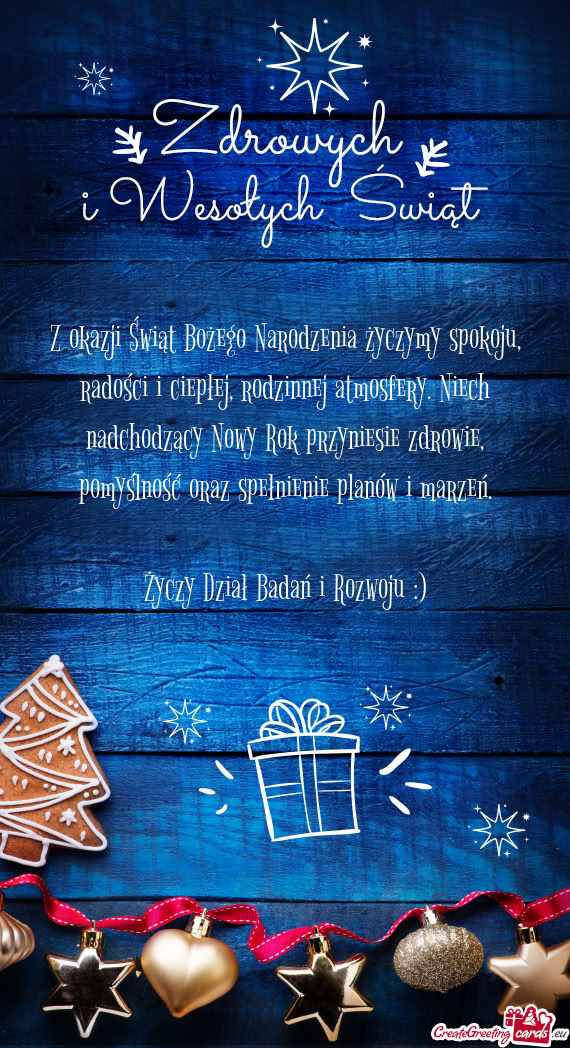 Zdrowych
i Wesołych Świąt
Z okazji Świąt Bożego Narodzenia życzymy spokoju,
radości i ciepłej, rodzinnej atmosfery. Niech
nadchodzący Nowy Rok przyniesie zdrowie,
pomyślność oraz spełnienie planów i marzeń.
Życzy Dział Badań i Rozwoju :)
CreateGreetingcards.eu